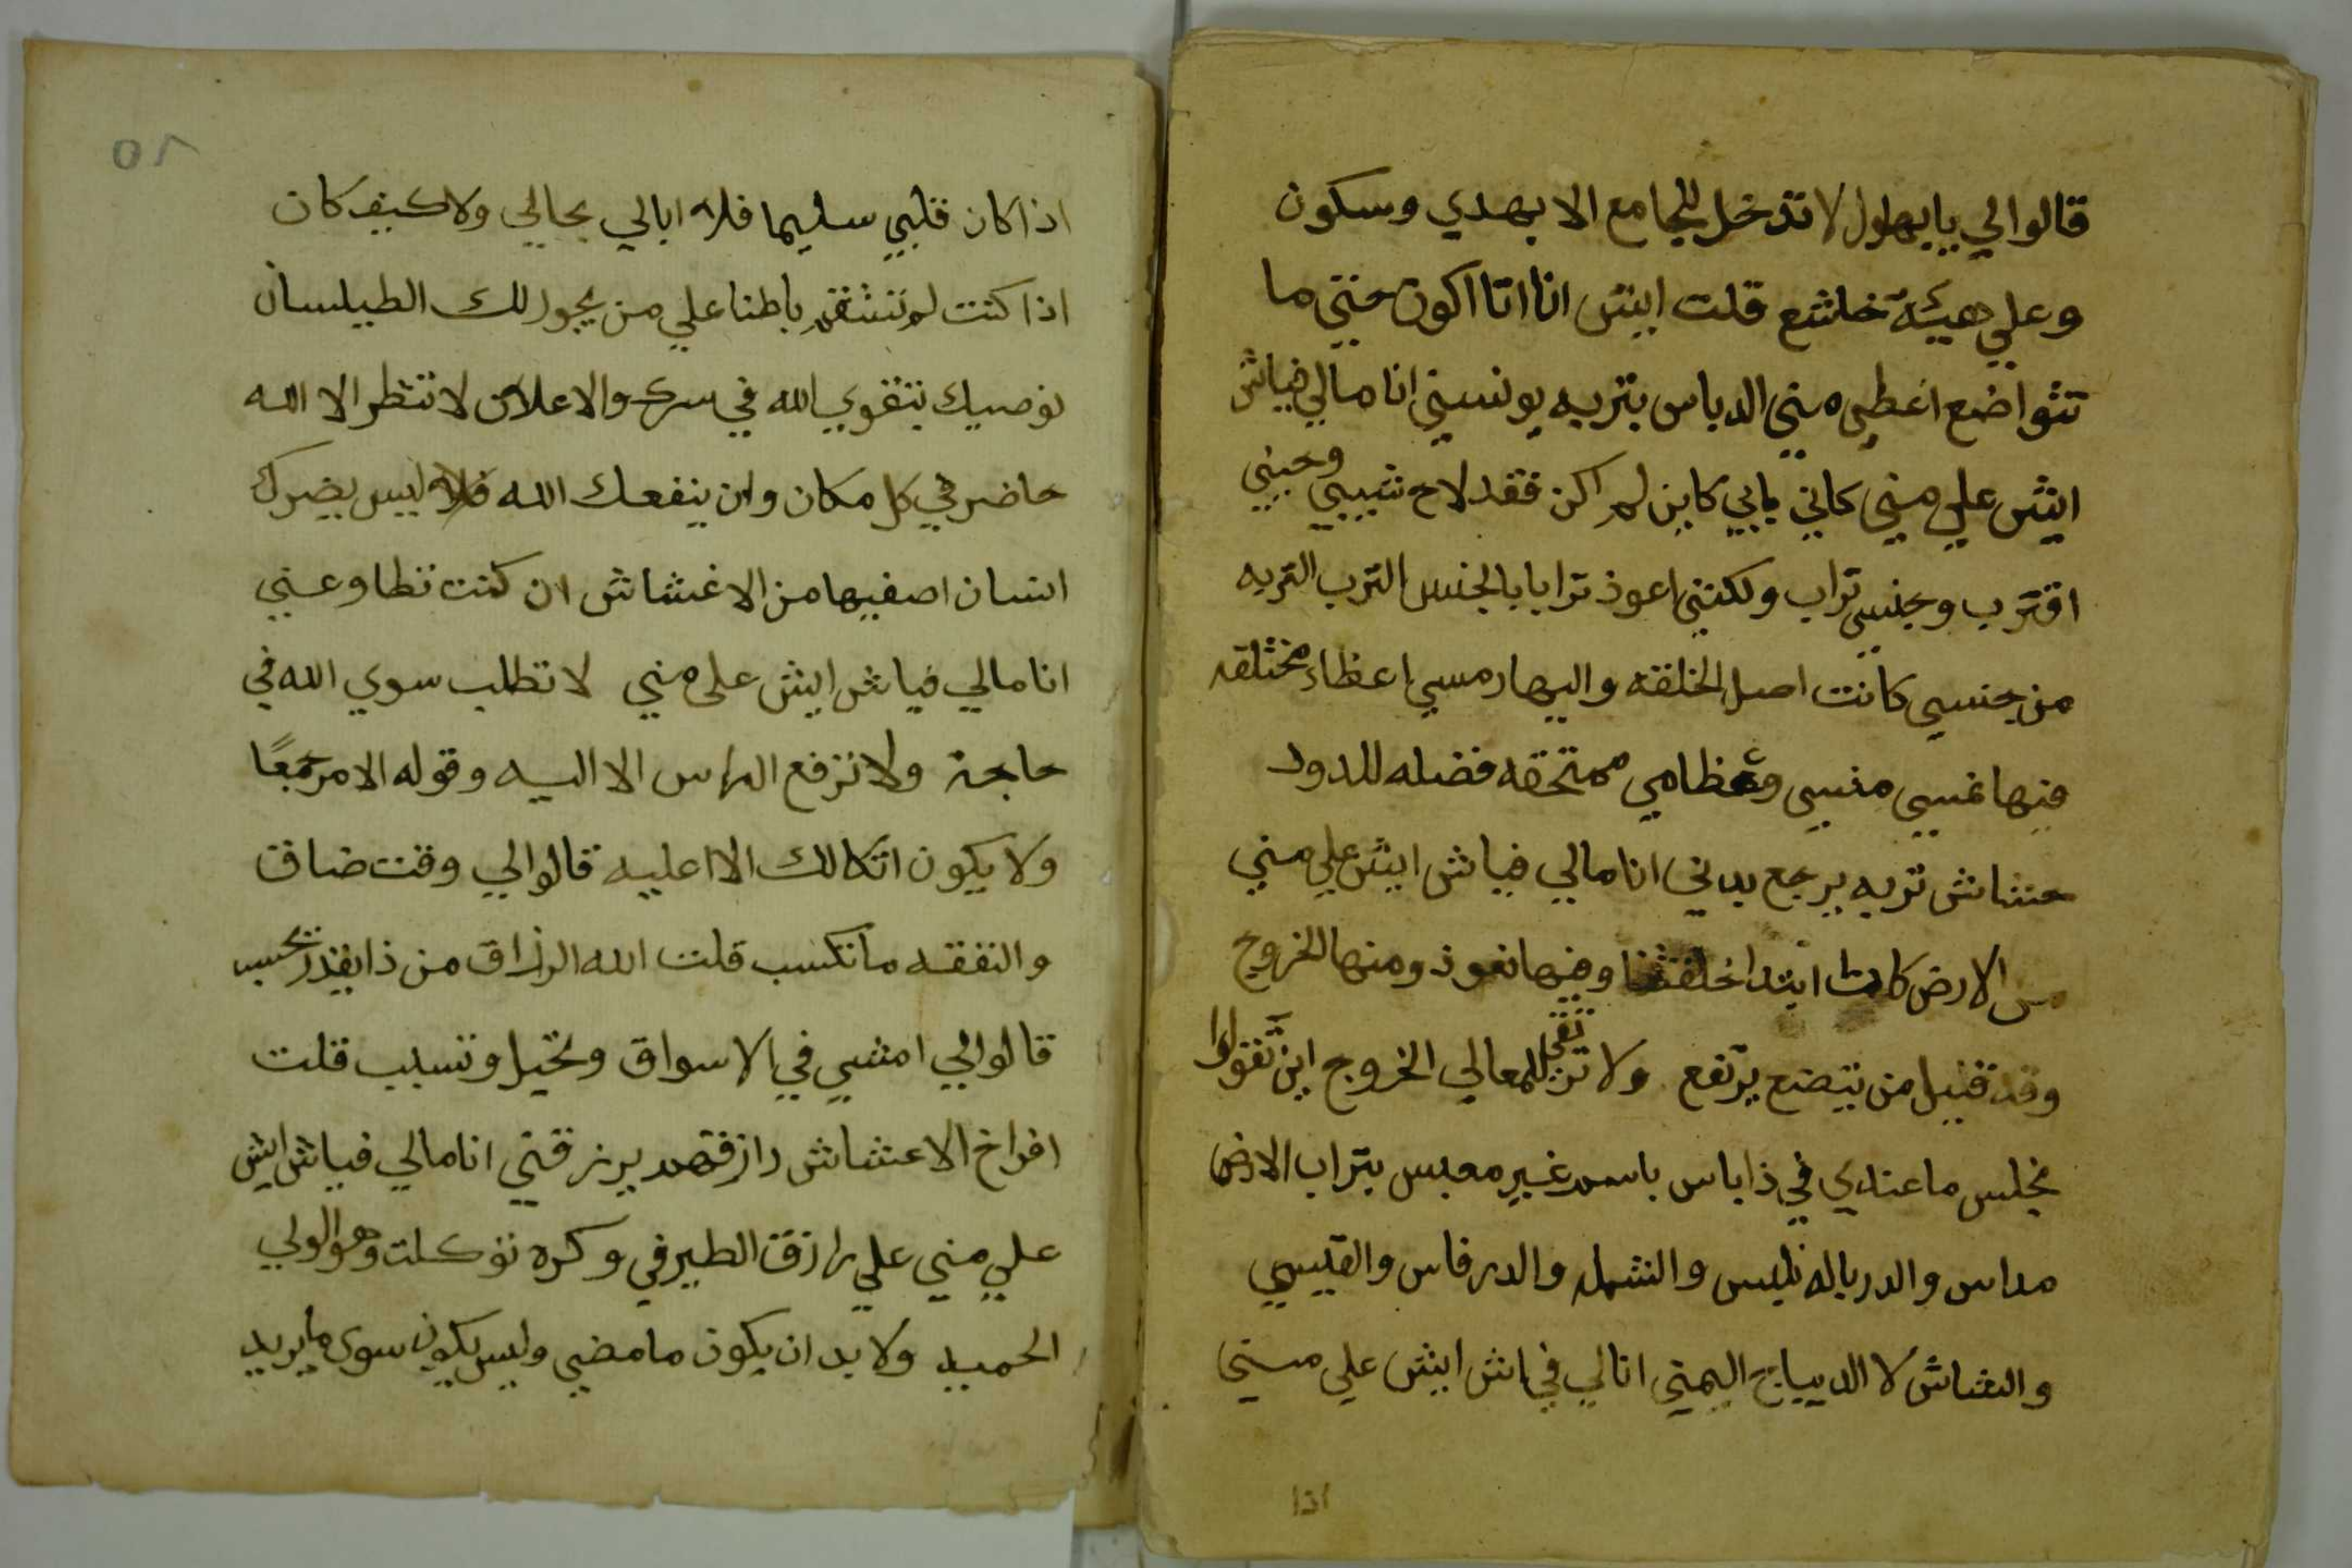 قالوا لي يا بهلول لا تدخل للجامع الا بهدي وسكون
وعلي هيئة خاشع قلت ايش انا اتا اكون حتي ما
تتواضع اغطي مني الدباس بتربه يونسيني انا مالي فياش
ايش علي مني كاني يابي كاين لم اكن فقد لاح شيبي وحيني
اقترب وجنسي تراب ولكنني اعوذ ترابا بالجنس الترب التربه
من جنسي كانت اصل الخلقه واليها رمسي اعظاء مختلقه
فيها غسي منسي وعظامي ممتحقه فضله للدود
حشاش تربه يرجع بدني انا مالي فياش ايش علي مني
من الارض كانت ابتدا خلقتنا وفيها نعوذ ومنها الخروج
وقد قيل من يتضع يرتفع ولا ترتقي للمعالي الخروج اين تقولوا
نجلس ما عندي في ذا باس باسم غير معبس بتراب الارض
مداس والدرباله نلبس والشمله والدرفاس والقيسي
والشاش لا الديباج اليمني انالي في اش ايش علي مني
اذا
٥٨
اذا كان قلبي سليما فلا ابالي بحالي ولا كيف كان
اذا كنت لم تنتقد باطنا علي من يجوز لك الطيلسان
نوصيك بتقوي الله في سرك والاعلان لا تنتظر الا الله
حاضر في كل مكان وان ينفعك الله فلا ليس يضرك
انسان اصفيها من الاغشاش ان كنت تطاوعني
انا مالي فياش ايش علي مني لا تطلب سوي الله في
حاجة ولا نرفع الراس الا اليه وقوله الامر جمعًا
ولا يكون اتكالك الا اعليه قالوا لي وقت ضاق
والنفقه ما تكسب قلت الله الرزاق من ذا يقدر يحسب
قالوا لي امشي في الاسواق وتحيل وتسبب قلت
افراخ الاعشاش رازقهم يرزقني انا مالي فياش ايش
علي مني علي رازق الطير في وكره توكلت وهو الولي
الحميد ولا بد ان يكون ما مضي وليس يكون سوي ما يريد